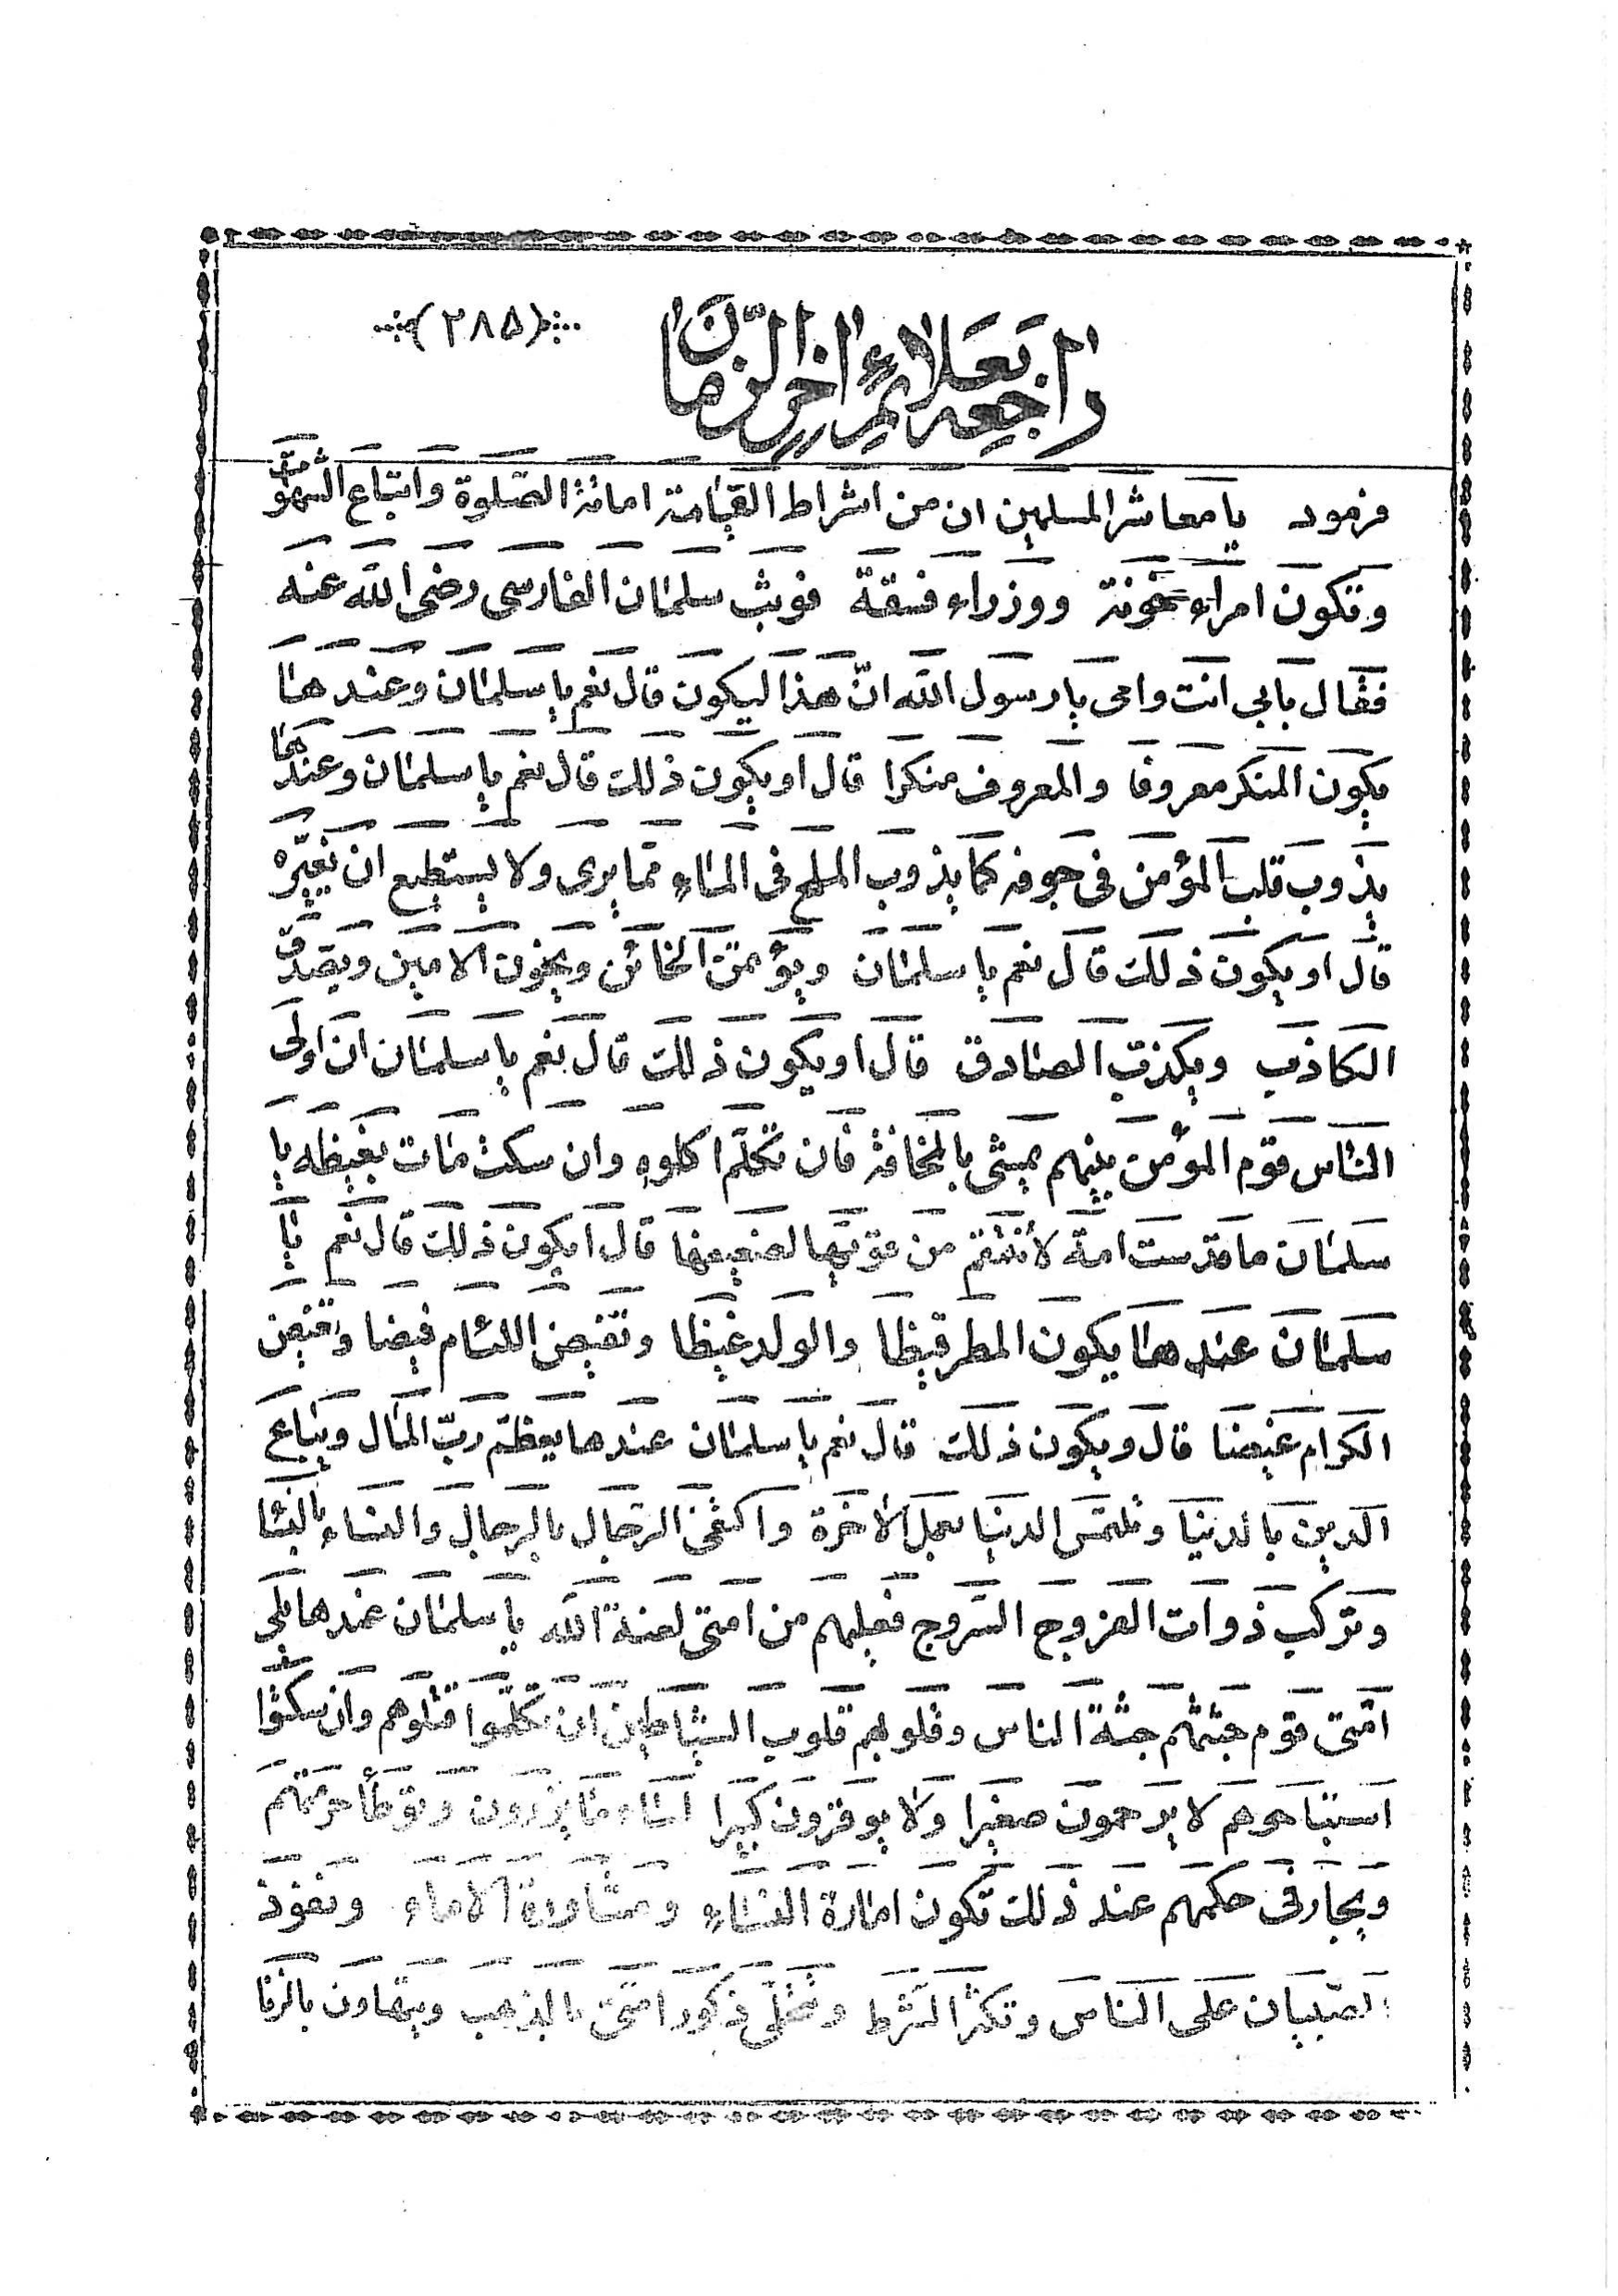 (۲۸۵)
راجعه بعلائم اخر الزمان
فرمود يا معاشر المسلمين ان من اشراط القيامة اماتة الصلوة واتباع الشهوات
وتكون امراء خونة ووزراء فسقة فوثب سلمان الفارسى رضى الله عنه
فقال بابى انت وامى يا رسول الله انّ هذا ليكون قال نعم يا سلمان وعندها
يكون المنكر معروفا والمعروف منكرا قال او يكون ذلك قال نعم يا سلمان وعندها
يذوب قلب المؤمن فى جوفه كما يذوب الملح فى الماء ممّا يرى ولا يستطيع ان يغيّره
قال او يكون ذلك قال نعم يا سلمان ويؤتمن الخائن ويخون الامين ويصدّق
الكاذب ويكذب الصادق قال او يكون ذلك قال نعم يا سلمان ان اولى
الناس قوم المؤمن بينهم يمشى بالمخافة فان تكلّم اكلوه وان سكت مات بغيظه يا
سلمان ما قدست امة لا تنتقم من قويّها لضعيفها قال ايكون ذلك قال نعم يا
سلمان عندها يكون المطر قيظا والولد غيظا وتفيض اللئام فيضا وتغيض
الكرام غيضا قال ويكون ذلك قال نعم يا سلمان عندها يعظّم ربّ المال ويباع
الدين بالدنيا وتلتمس الدنيا بعمل الاخرة واكتفى الرجال بالرجال والنساء بالنسا
وتركب ذوات الفروج السّروج فعليهم من امتى لعنة الله يا سلمان عندها يلى
امّتى قوم جثتهم جثة الناس وقلوبهم قلوب الشياطين ان تكلّموا قتلوهم وان سكتوا
استباحوهم لا يرحمون صغيرا ولا يوقرون كبيرا الساء ما يزرون وتوطأ حرمتهم
ويجار فى حكمهم عند ذلك تكون امارة النساء ومشاورة الاماء ونفوذ
الصبيان على الناس وتكثر الشرط وتحلّى ذكور امتى بالذهب ويتهاون بالزنا